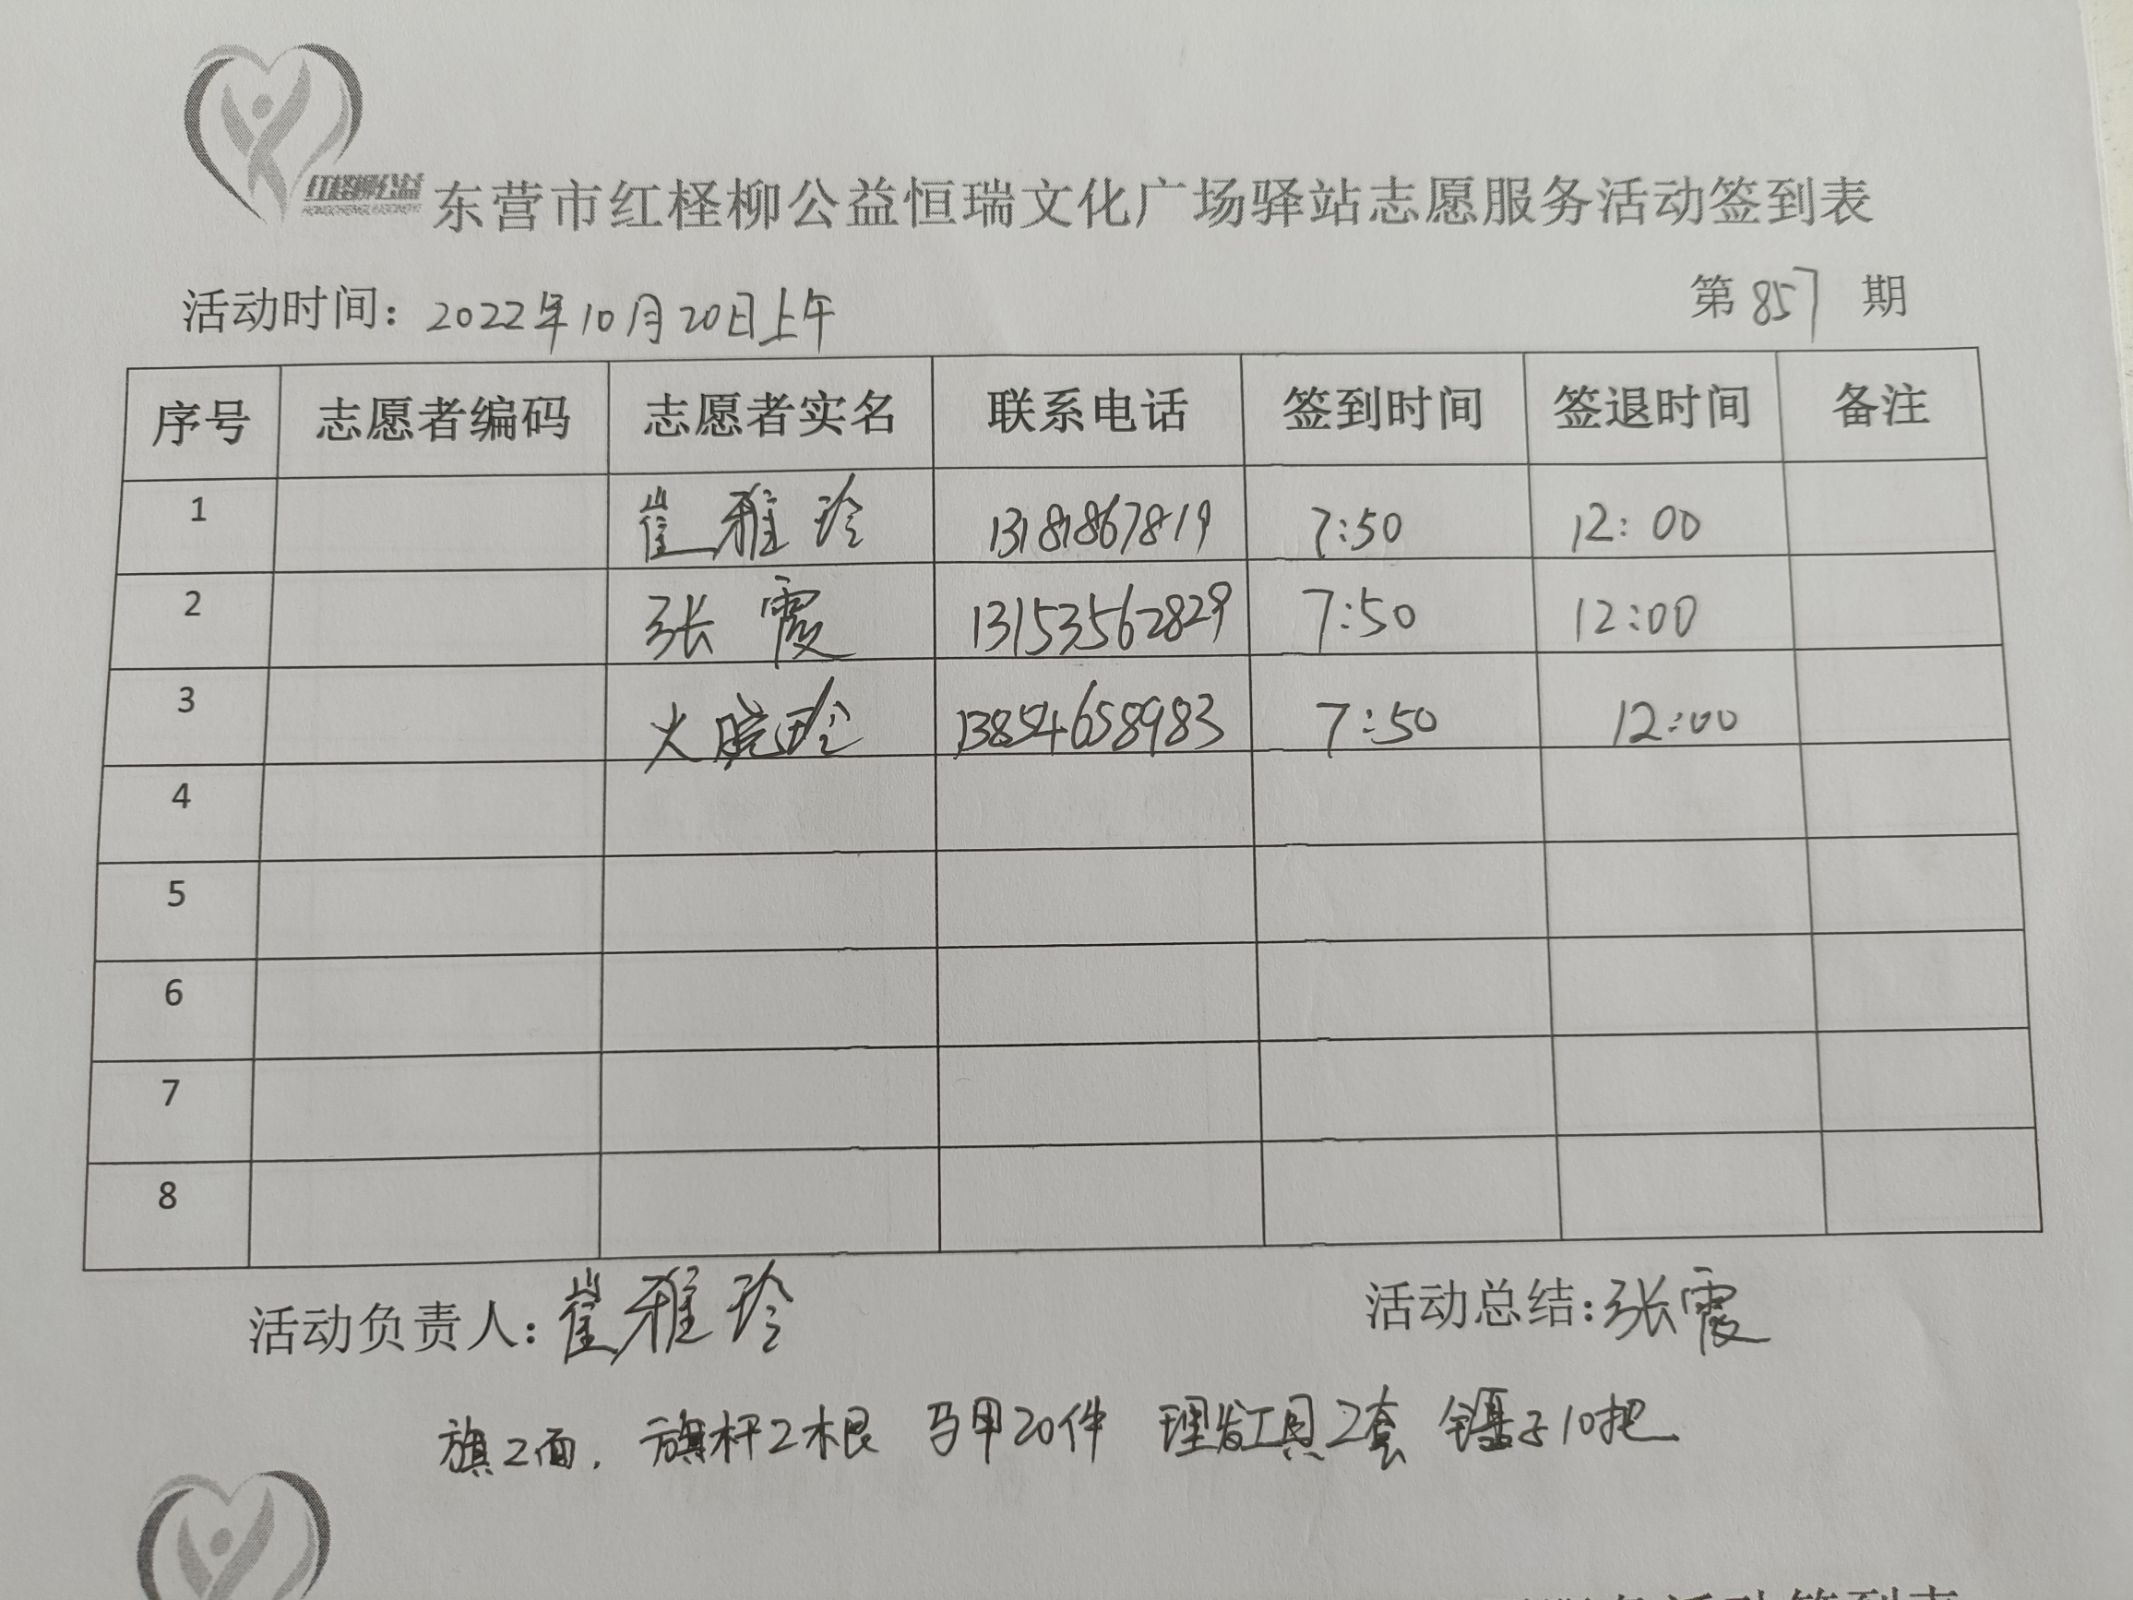 红柽柳公益
东营市红柽柳公益恒瑞文化广场驿站志愿服务活动签到表
活动时间：2022年10月20日上午 第857期
序号 志愿者编码 志愿者实名 联系电话 签到时间 签退时间 备注
1 崔雅玲 13181867819 7:50 12:00
2 张霞 13153562829 7:50 12:00
3 13854658983 7:50 12:00
4
5
6
7
8
活动负责人：崔雅玲 活动总结：张霞
旗2面，旗杆2根 马甲20件 理发工具2套 镊子10把